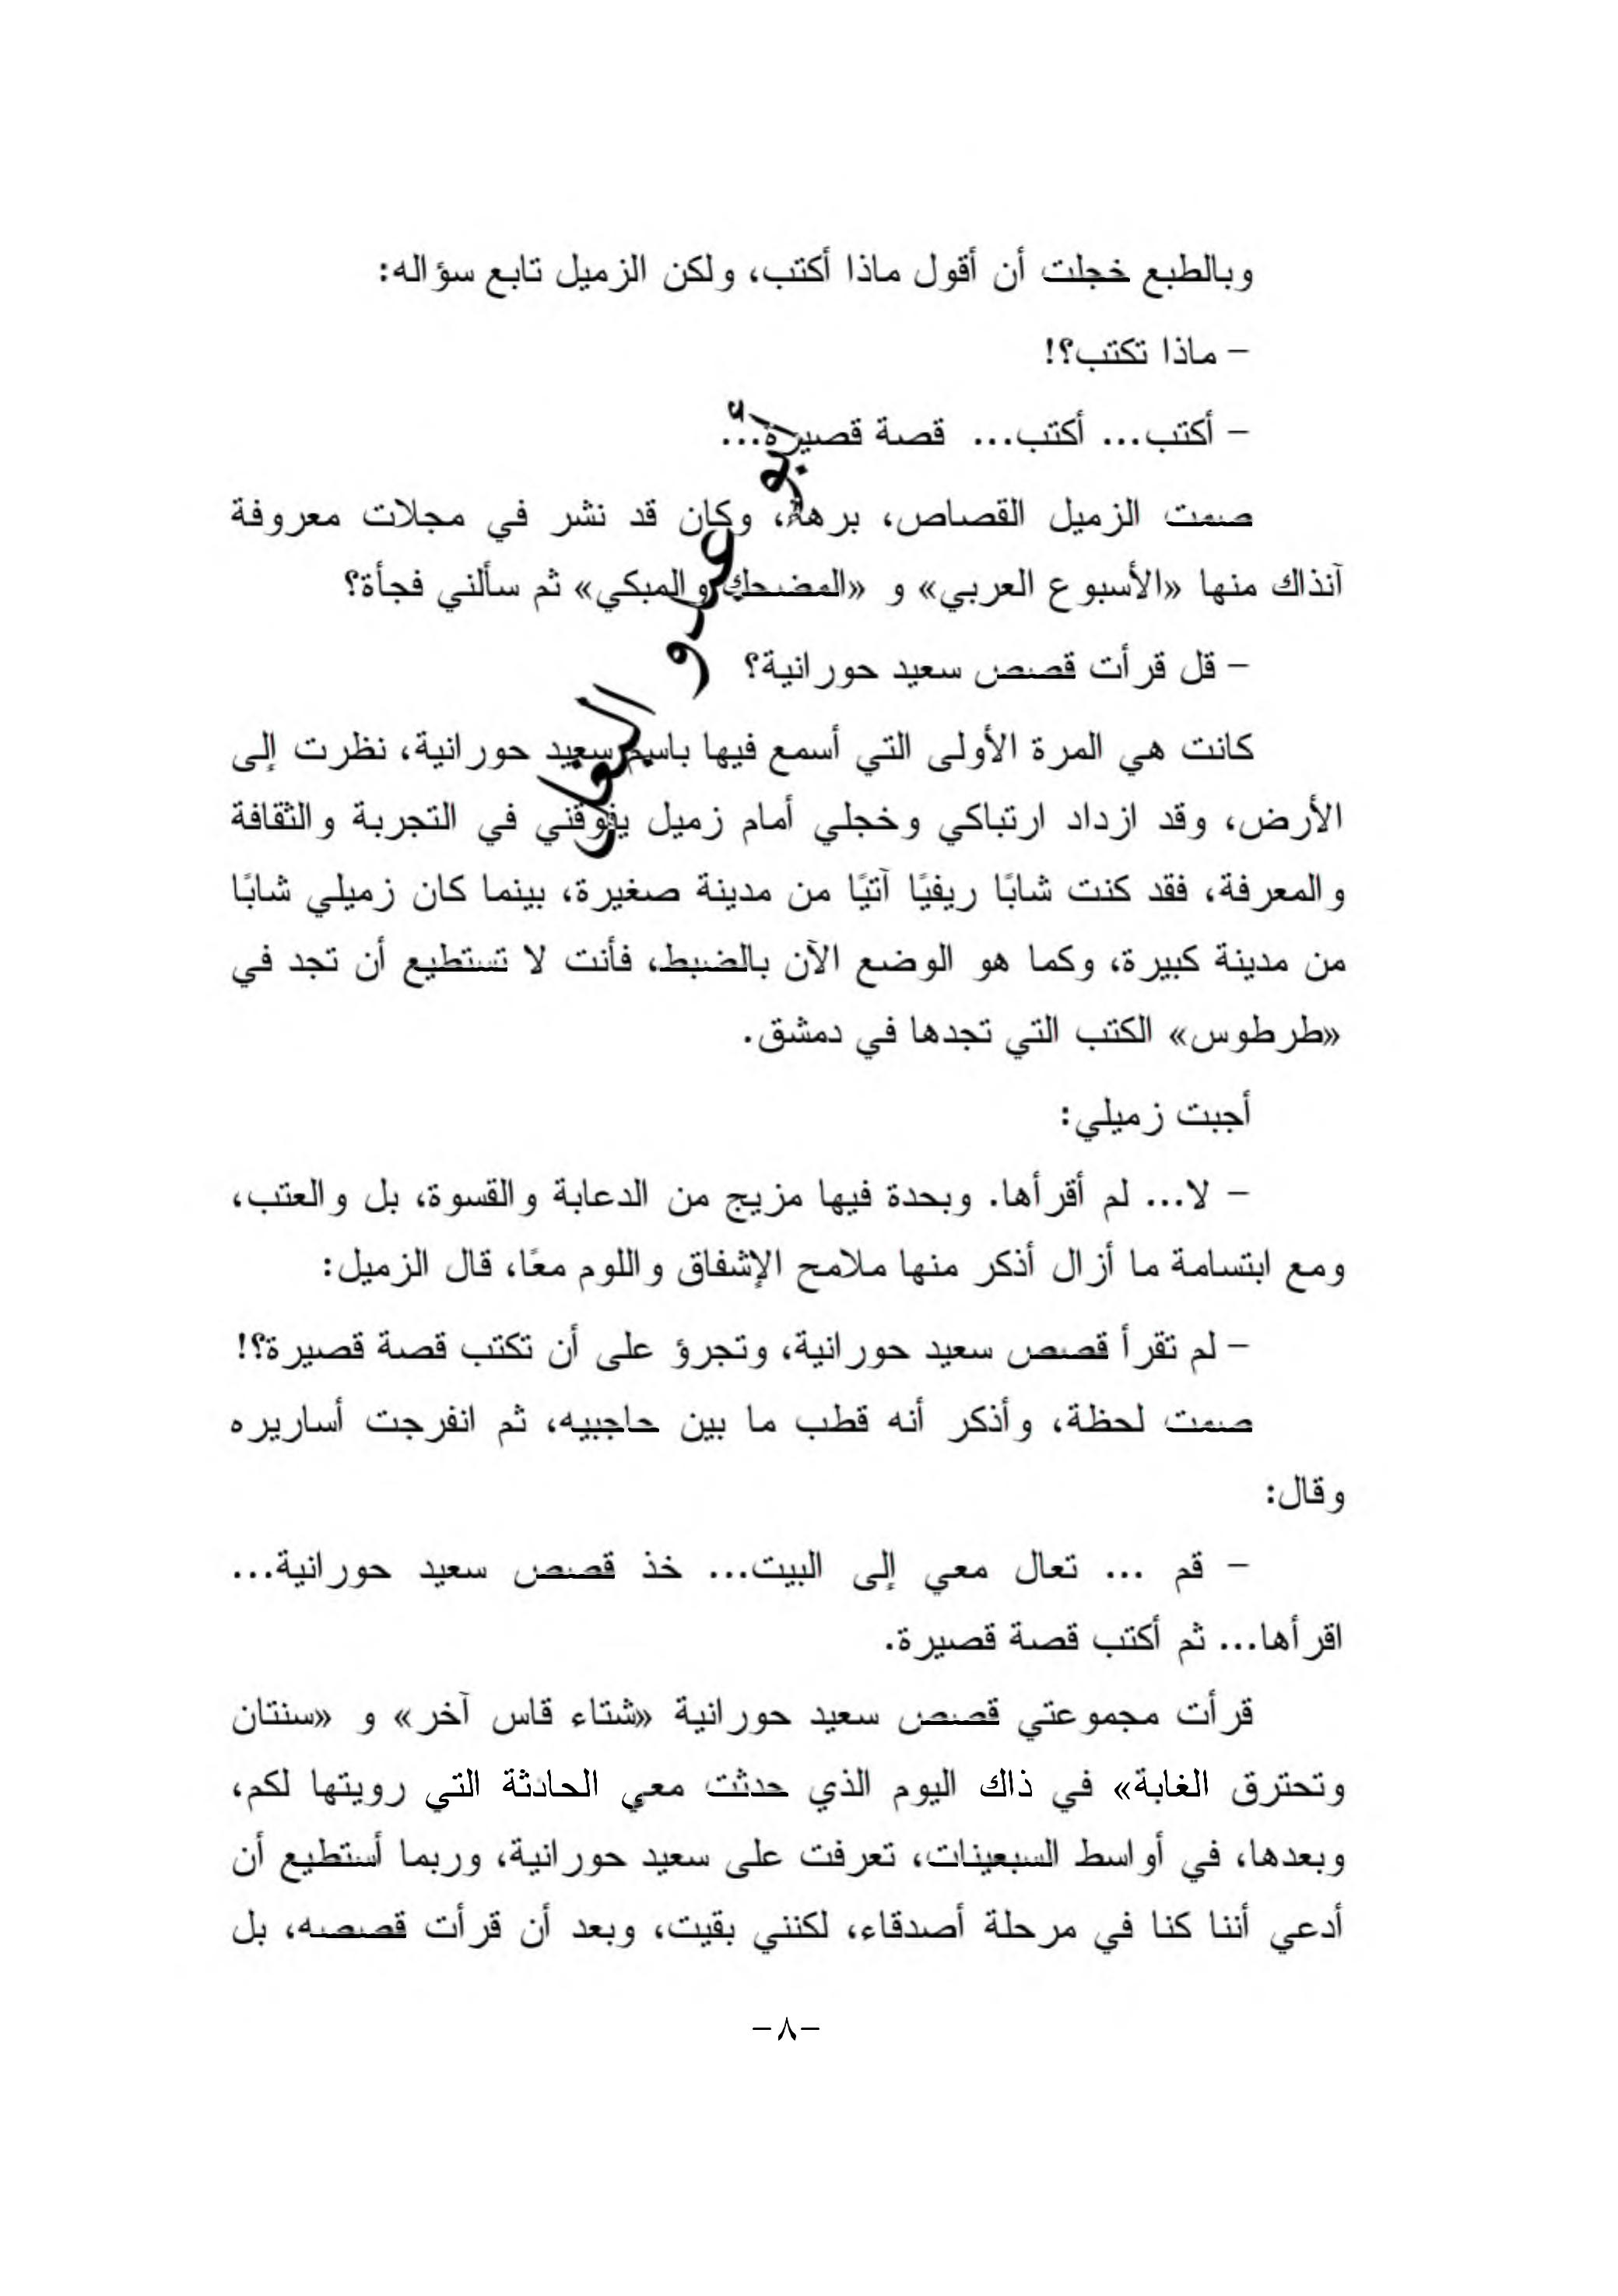 وبالطبع خجلت أن أقول ماذا أكتب، ولكن الزميل تابع سؤاله:
– ماذا تكتب؟!
– أكتب... أكتب... قصة قصيرة...
صمت الزميل القصاص، برهة، وكان قد نشر في مجلات معروفة
آنذاك منها «الأسبوع العربي» و «المضحك والمبكي» ثم سألني فجأة؟
– قل قرأت قصص سعيد حورانية؟
كانت هي المرة الأولى التي أسمع فيها باسم سعيد حورانية، نظرت إلى
الأرض، وقد ازداد ارتباكي وخجلي أمام زميل يفوقني في التجربة والثقافة
والمعرفة، فقد كنت شابًا ريفيًا آتيًا من مدينة صغيرة، بينما كان زميلي شابًا
من مدينة كبيرة، وكما هو الوضع الآن بالضبط، فأنت لا تستطيع أن تجد في
«طرطوس» الكتب التي تجدها في دمشق.
أجبت زميلي:
– لا... لم أقرأها. وبحدة فيها مزيج من الدعابة والقسوة، بل والعتب،
ومع ابتسامة ما أزال أذكر منها ملامح الإشفاق واللوم معًا، قال الزميل:
– لم تقرأ قصص سعيد حورانية، وتجرؤ على أن تكتب قصة قصيرة؟!
صمت لحظة، وأذكر أنه قطب ما بين حاجبيه، ثم انفرجت أساريره
وقال:
– قم ... تعال معي إلى البيت... خذ قصص سعيد حورانية...
اقرأها... ثم أكتب قصة قصيرة.
قرأت مجموعتي قصص سعيد حورانية «شتاء قاس آخر» و «سنتان
وتحترق الغابة» في ذاك اليوم الذي حدثت معي الحادثة التي رويتها لكم،
وبعدها، في أواسط السبعينات، تعرفت على سعيد حورانية، وربما أستطيع أن
أدعي أننا كنا في مرحلة أصدقاء، لكنني بقيت، وبعد أن قرأت قصصه، بل
–٨–
أبو عبدو البغل